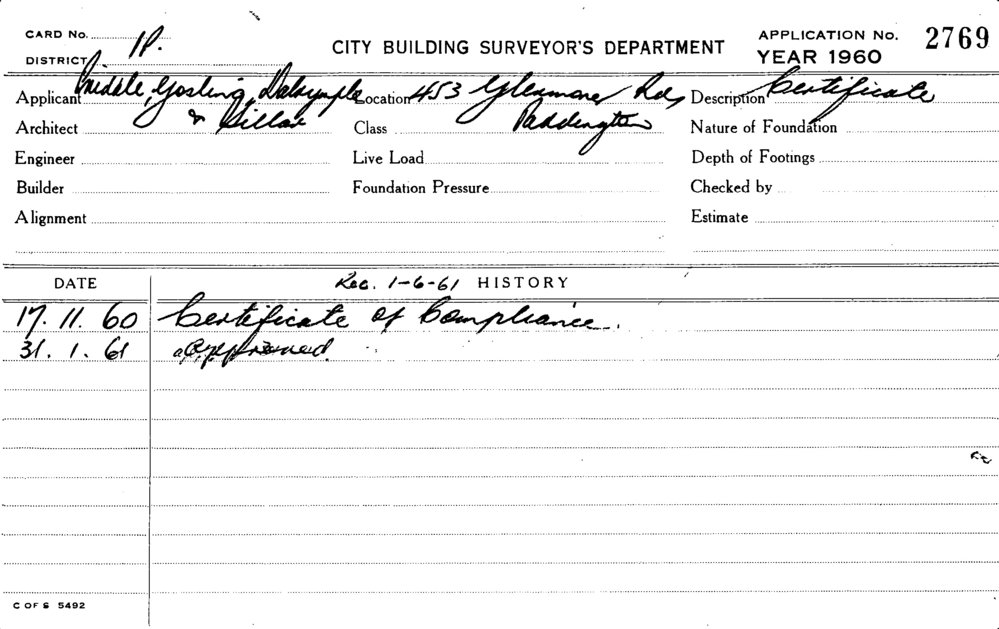 CARD No. 1P.
DISTRICT
CITY BUILDING SURVEYOR'S DEPARTMENT
APPLICATION No. 2769
YEAR 1960
Applicant Middle, Gosling, Dalrymple & Sillar
Location 453 Glenmore Rd, Paddington
Description Certificate
Architect
Class
Nature of Foundation
Engineer
Live Load
Depth of Footings
Builder
Foundation Pressure
Checked by
Alignment
Estimate
DATE
Rec. 1-6-61 HISTORY
17. 11. 60 Certificate of Compliance.
31. 1. 61 approved.
C OF S 5492